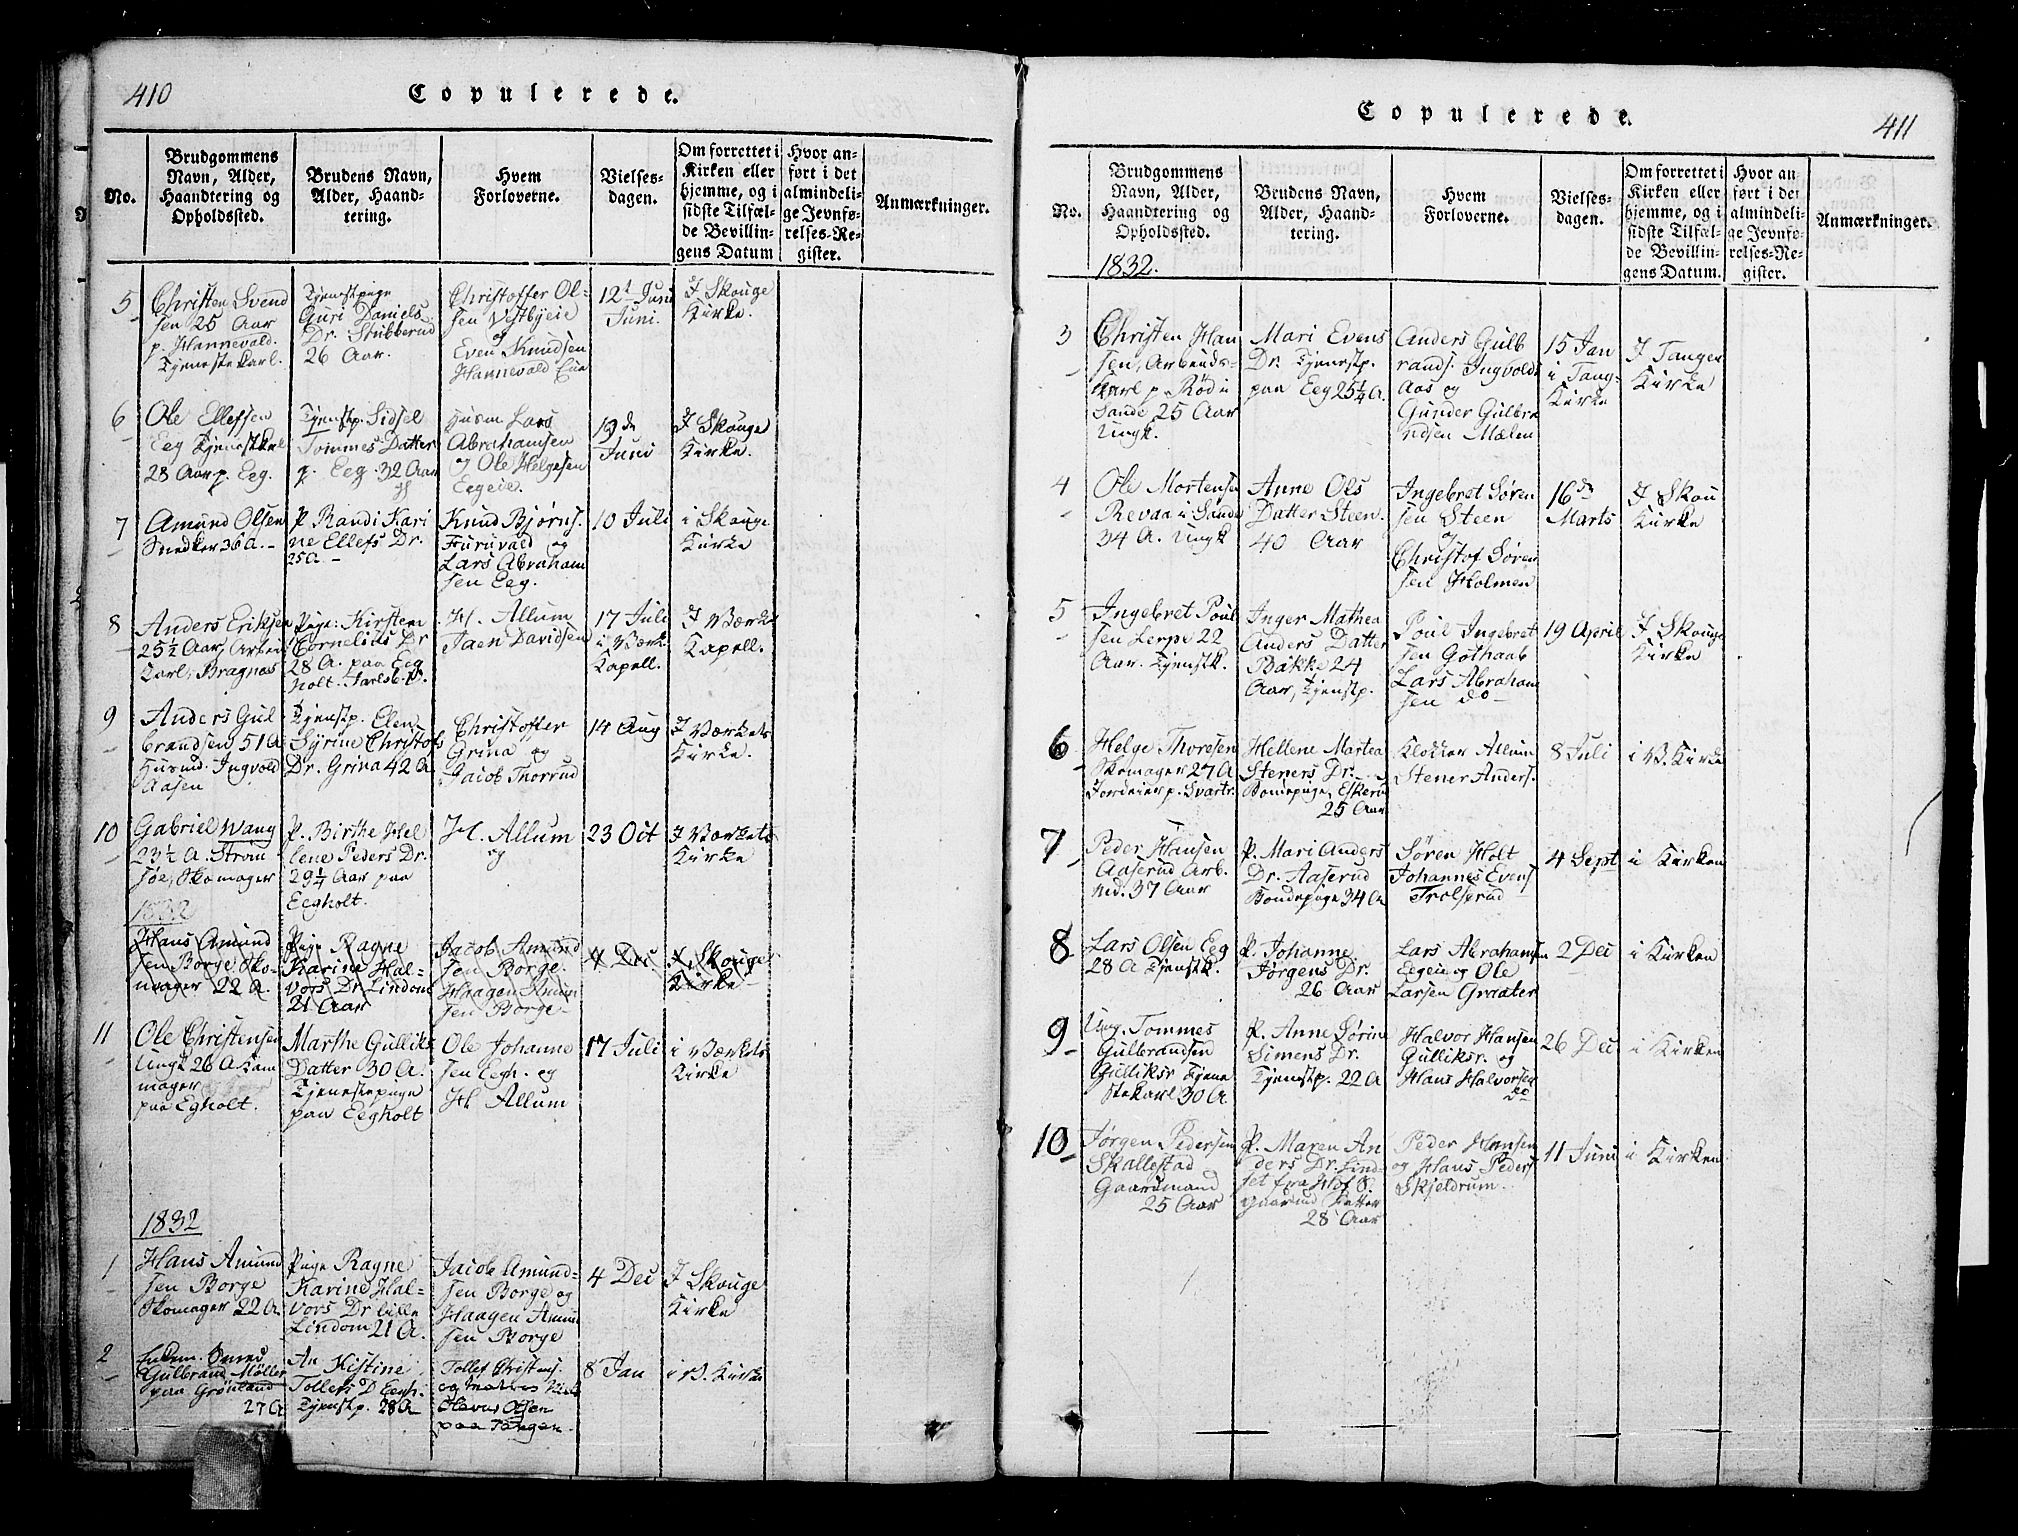 410
Copulerede.
No.
Brudgommens
Navn, Alder,
Haandtering og
Opholdssted.
Brudens Navn,
Alder, Haand-
tering.
Hvem
Forloverne.
Vielses-
dagen.
Om forrettet i
Kirken eller
hjemme, og i
sidste Tilfæl-
de Bevillin-
gens Datum
Hvor an-
ført i det
almindeli-
ge Jevnfø-
relses-Re-
gister.
Anmærkninger.
5
Christen Svend
sen 25 Aar
p. Hannevald.
Tjenestekarl.
Tjenestpige
Guri Daniels
Dr. Stubberud
26 Aar.
Christoffer Ol-
sen Vestbyeie
og
Even Knudsen
Hannevald Eie
12t Juni
Juni.
I Skouge
Kirke.
6
Ole Ellefsen
Eeg Tjenestkrl
28 Aar p. Eeg.
Tjenstp. Sidsel
Tommes Datter
p. Eeg. 32 Aar
Husm Lars
Abrahamsen
og Ole Helgesen
Eegeie.
19de
Juni
I Skouge
Kirke.
7
Amund Olsen
Snedker 36 A.
P. Randi Kari
ne Ellefs Dr.
25 A.
Knud Bjørns.
Furuvald og
Lars Abraham
sen Eeg.
10 Juli
i Skouge
Kirke
8
Anders Eriksen
25½ Aar, Arbei
Karl, Bragnæs
Pige: Kirsten
Cornelius Dr
28 A. paa Eeg
holt. Jarlsb. P.
H. Allum
Jaen Davidsen
17 Juli
i Værk
Kapell.
I Værks
Kapell.
9
Anders Gul
brandsen 51 A
Husmd. Ingvold
Aasen
Tjenstp. Elen
Syrine Christofs
Dr. Grina 42 A.
Christoffer
Grina og
Jacob Thorrud
14 Aug
I Værkets
Kirke.
10
Gabriel Wang
23½ A. Strøm
søe, Skomager
P. Birthe Hel
lene Peders Dr.
29¼ Aar paa
Eegholt.
H. Allum
og
23 Oct
I Værkets
Kirke
1832
Hans Amund
sen Borge Sko-
mager 22 A.
Pige Ragne
Karine Hal-
vors Dr Lindom
21 Aar
Jacob Amund
sen Borge.
Haagen Amun
sen Borge
4 Dec
I Skouge
Kirke
11
Ole Christensen
Ungk 26 A
mager
paa Egholt.
Marthe Gulliks
Datter 30 A.
Tjenestepige
paa Eegholt
Ole Johanne
sen Eegh. og
H. Allum
17 Juli
i Værkets
Kirke
1832
1
Hans Amund
sen Borge
Skomager 22 A.
Pige Ragne
Karine Hal-
vors Dr lille
Lindom 21 A.
Jacob Amund-
sen Borge og
Haagen Amun
sen Borge
4 Dec
I Skouge
Kirke
2
Enkem. Smed
Gulbrand Møller
paa Grønland
27 A
An Kistine
Tollefs D Eegh.
Tjenstp. 28 A
Tollef Christens.
og
Olsen
paa Tangen.
8 Jan
i V. Kirke
Copulerede.
411
No.
Brudgommens
Navn, Alder,
Haandtering og
Opholdssted.
Brudens Navn,
Alder, Haand-
tering.
Hvem
Forloverne.
Vielses-
dagen.
Om forrettet i
Kirken eller
hjemme, og i
sidste Tilfæl-
de Bevillin-
gens Datum.
Hvor an-
ført i det
almindeli-
ge Jevnfø-
relses-Re-
gister.
Anmærkninger.
1832.
3
Christen Han
sen, Arbeids-
karl p. Rød i
Sande 25 Aar
Ungk.
Mari Evens
Dr. Tjenstp.
paa Eeg 25¼ A.
Anders Gulb
rands. Ingvolds
Aas og
Gunder Gulbra
ndsen Mælen
15 Jan
i Tang-
Kirke
I Tangen
Kirke
4
Ole Mortensen
Revaa i Sande
34 A. Ungk
Anne Ols
Datter Steen.
40 Aar
Ingebret Søren
sen Steen
og
Christof Søren
sen Holmen
16de
Marts
I Skou
Kirke
5
Ingebret Poul
sen Lerpe 22
Aar. Tjenstk.
Inger Mathea
Anders Datter
Bakke 24
Aar, Tjenstp.
Poul Ingebret
sen Gothaab
Lars Abraham
sen do
19 April
I Skouge
Kirke
6
Helge Thoresen
Skomager 27 A
Jordeier p. Svartr.
Hellene Martea
Steners Dr.
Bondepige, Eskeru
25 Aar
Klokker Allum
Stener Anders.
8 Juli
i V. Kirke
7
Peder Hansen
Aaserud Arb.
md. 37 Aar
P. Mari Anders
Dr. Aaserud
Bondepige 34 A
Søren Holt
Johannes Evens
Trolserud
4 Sept
i Kirken
8
Lars Olsen Eeg
28 A Tjenstk.
P. Johanne
Jørgens Dr.
26 Aar
Lars Abrahamsen
Eegeie og Ole
Larsen Graater
2 Dec
i Kirken
9
Ung. Tommes
Gulbrandsen
Gulliksr Tjene
stekarl 30 A.
P. Anne Sørine
Simens Dr.
Tjenstp. 22 A
Halvor Hansen
Gulliksr. og
Hans Halvorsen
do
26 Dec
i Kirken
10
Jørgen Pedersen
Skallestad
Gaardmand
25 Aar
P. Maren An
ders Dr. Lind-
set fra Hof S.
Gaardmd Datter
28 Aar
Peder Hansen
og Hans Peders
Skjeldrum.
11 Juni
i Kirken